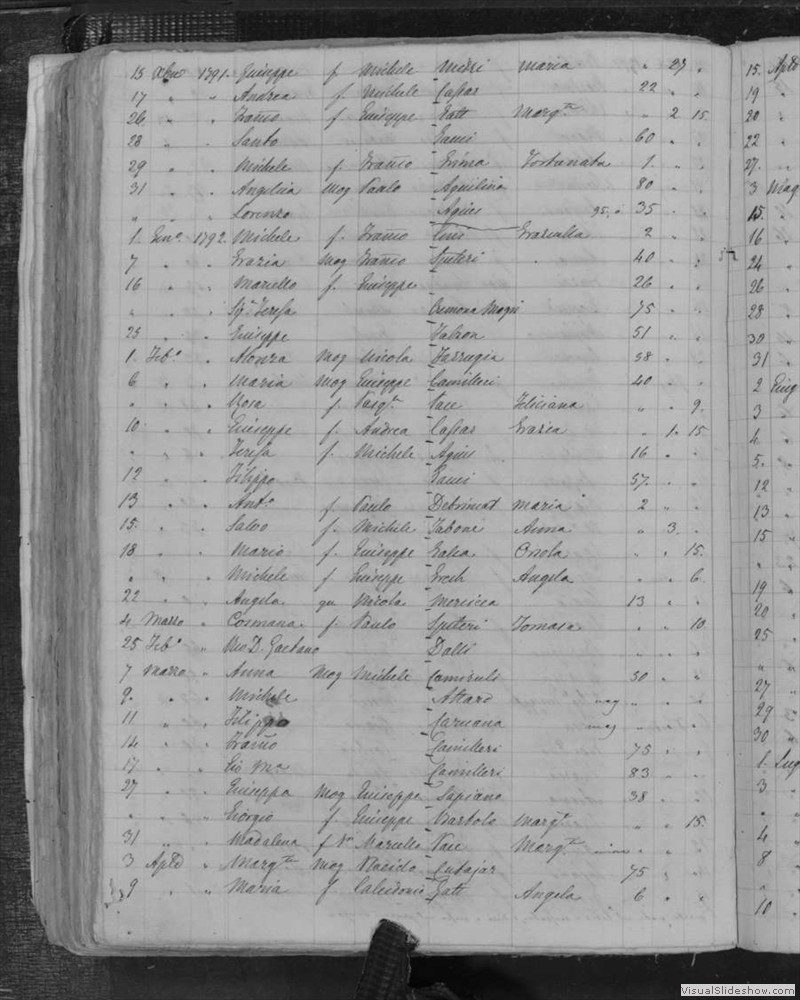 15 Xbre 1791. Giuseppe f Michele Medri Maria " 27 "
17 " " Andrea f Michele Cassar 22 " "
26 " " Franco f Giuseppe Gatt Margta " 2 15
28 " " Santo 60 " "
29 " " Michele f Franco Fortunata 1 " "
31 " " Angelica mog Paulo Aquilina 80 " "
" " " Lorenzo Agius 35 " "
1 Genº 1792 Michele f. Franco Graziulla 2 " "
7 " " Grazia mog Franco Spiteri 40 " "
16 " " f. Giuseppe 26 " "
" " " Teresa Cremona 75 " "
25 " " Giuseppe Falzon 51 " "
1 Febº " Alonza mog Nicola Farrugia 58 " "
6 " " Maria mog Giuseppe Camilleri 40 " "
" " " Rosa f. Pasqle Pace Feliciana " " 9
10 " " Giuseppe f. Andrea Cassar Grazia " 1 15
" " " Teresa f. Michele Agius 16 " "
12 " " Filippo 57 " "
13 " " Antº f Paulo Debrincat Maria 2 " "
15 " " Salvo f. Michele Tabone Anna " 3 "
18 " " Mario f. Giuseppe Galea Orsola " " 15
" " " Michele f Giuseppe Grech Angela " " 6
22 " " Angela qu Nicola Mercieca 13 " "
4 Marzo " Cosmana f. Paulo Spiteri Tomasa " " 10
25 Febº " D. Gaetano Dalli " " "
7 Marzo " Anna mog Michele 50 " "
9 " " Michele Attard " "
11 " " Filippo Caruana " "
14 " " Franco Camilleri 75 " "
17 " " Gio Ma Camilleri 83 "
27 " " Giuseppa mog Giuseppe Sapiano 38 " "
" " " Giorgio f Giuseppe Bartolo Margta " " 15
31 " " Madalena f Marcello Pace Margta " "
3 Aple " Margta mog Placido Cutajar 75 " "
9 " " Maria f Calcidonio Gatt Angela 6 " "
15. Aple
19 "
20 "
22 "
27 "
3 Mag
15 "
16 "
24 "
26 "
28 "
30 "
31 "
2 Giug
3 "
4 "
5 "
12 "
13 "
15 "
" "
19 "
20 "
25 "
" "
27 "
29 "
30 "
1 Lug
3 "
" "
4 "
8 "
" "
10 "
VisualSlideshow.com